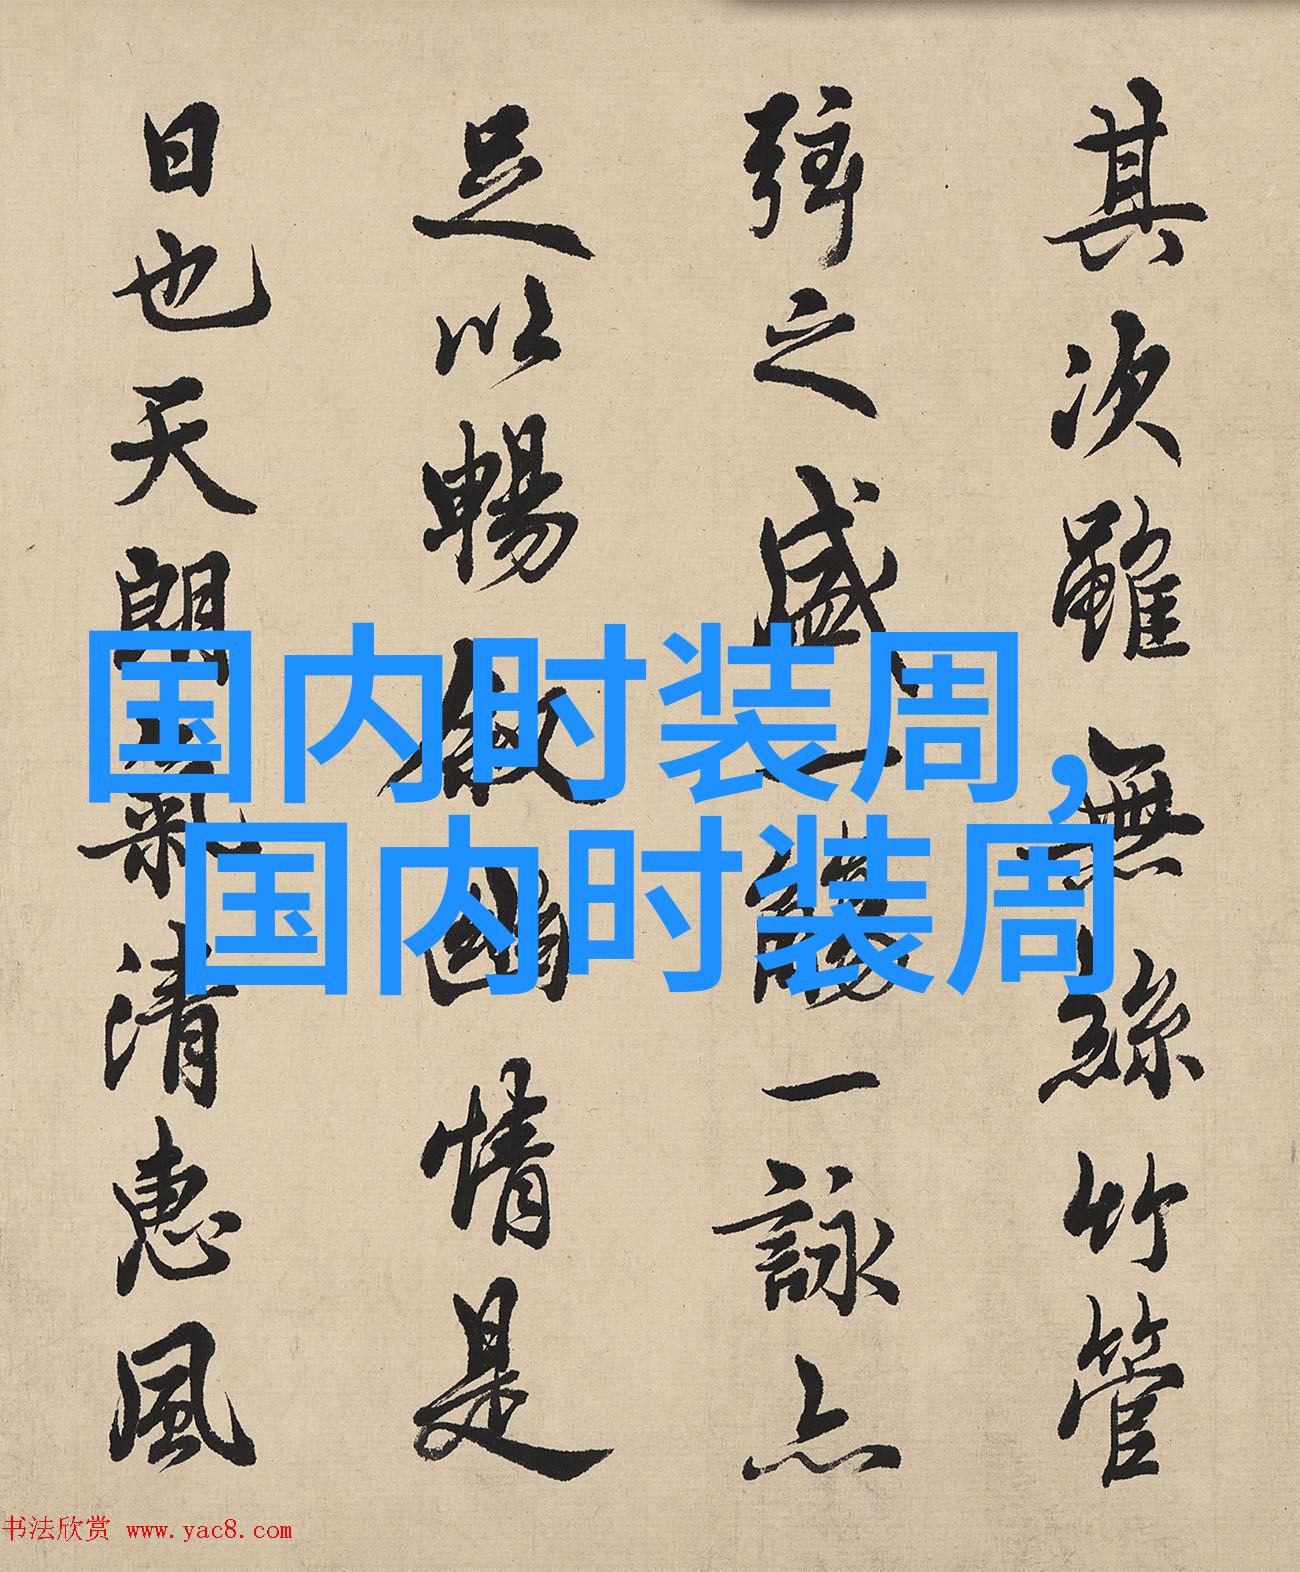 其次雖無絲竹管
弦之盛一觴一詠亦
足以暢敘幽情是
日也天朗氣清惠風
国内时装周,
国内时装周
书法欣赏 www.yac8.com